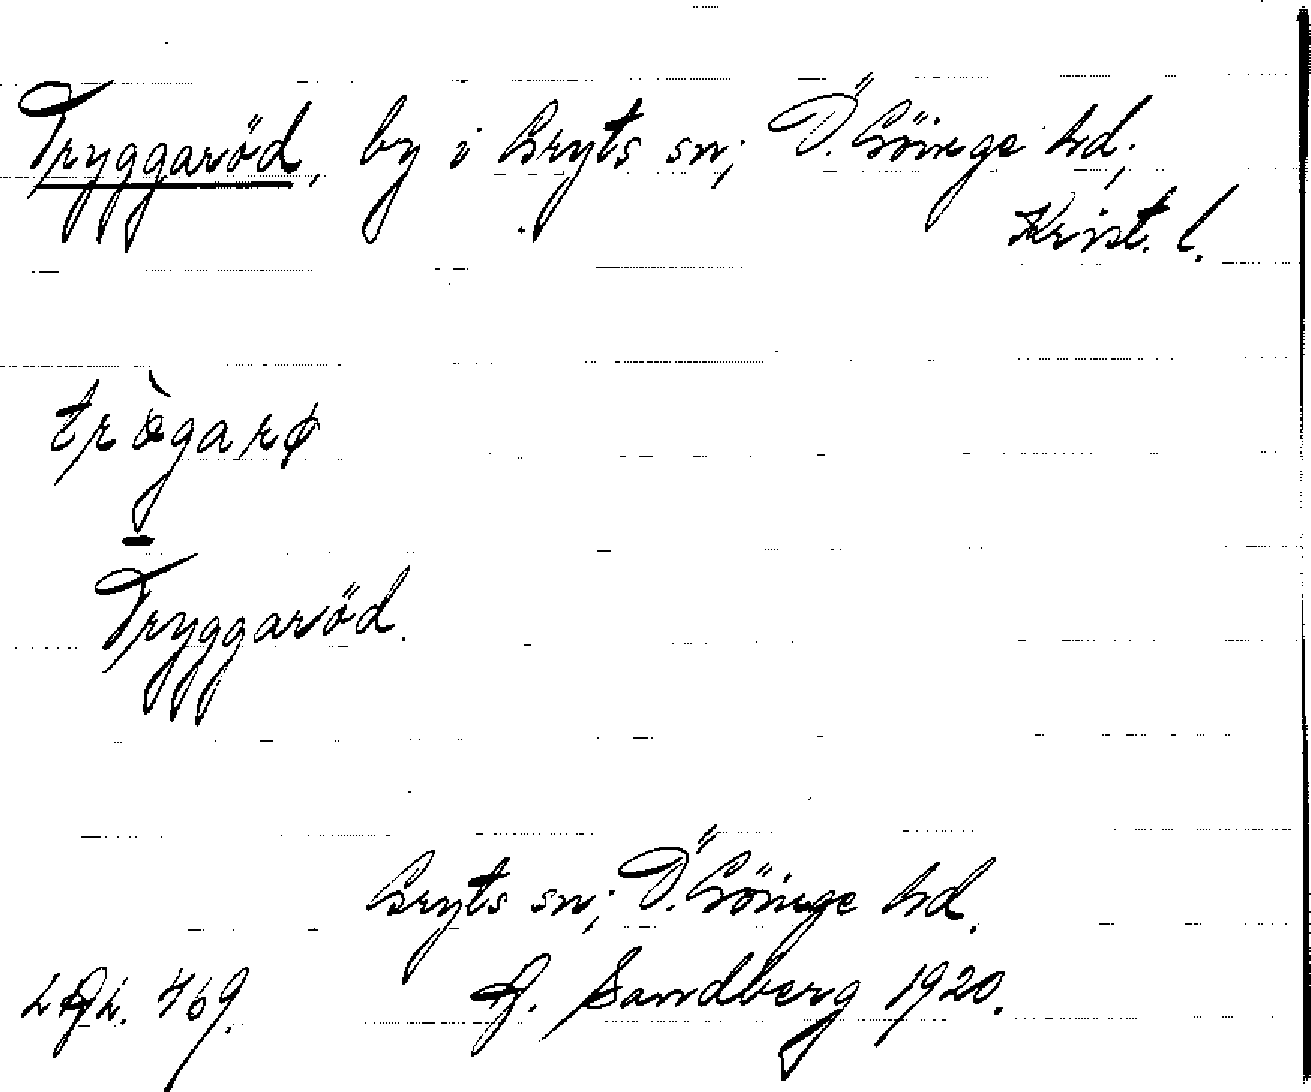 Tryggaröd, by i Gryts sn; Ö. Göinge hd;
Krist. l.
Tryggaröd.
Gryts sn; Ö. Göinge hd.
Sandberg 1920.